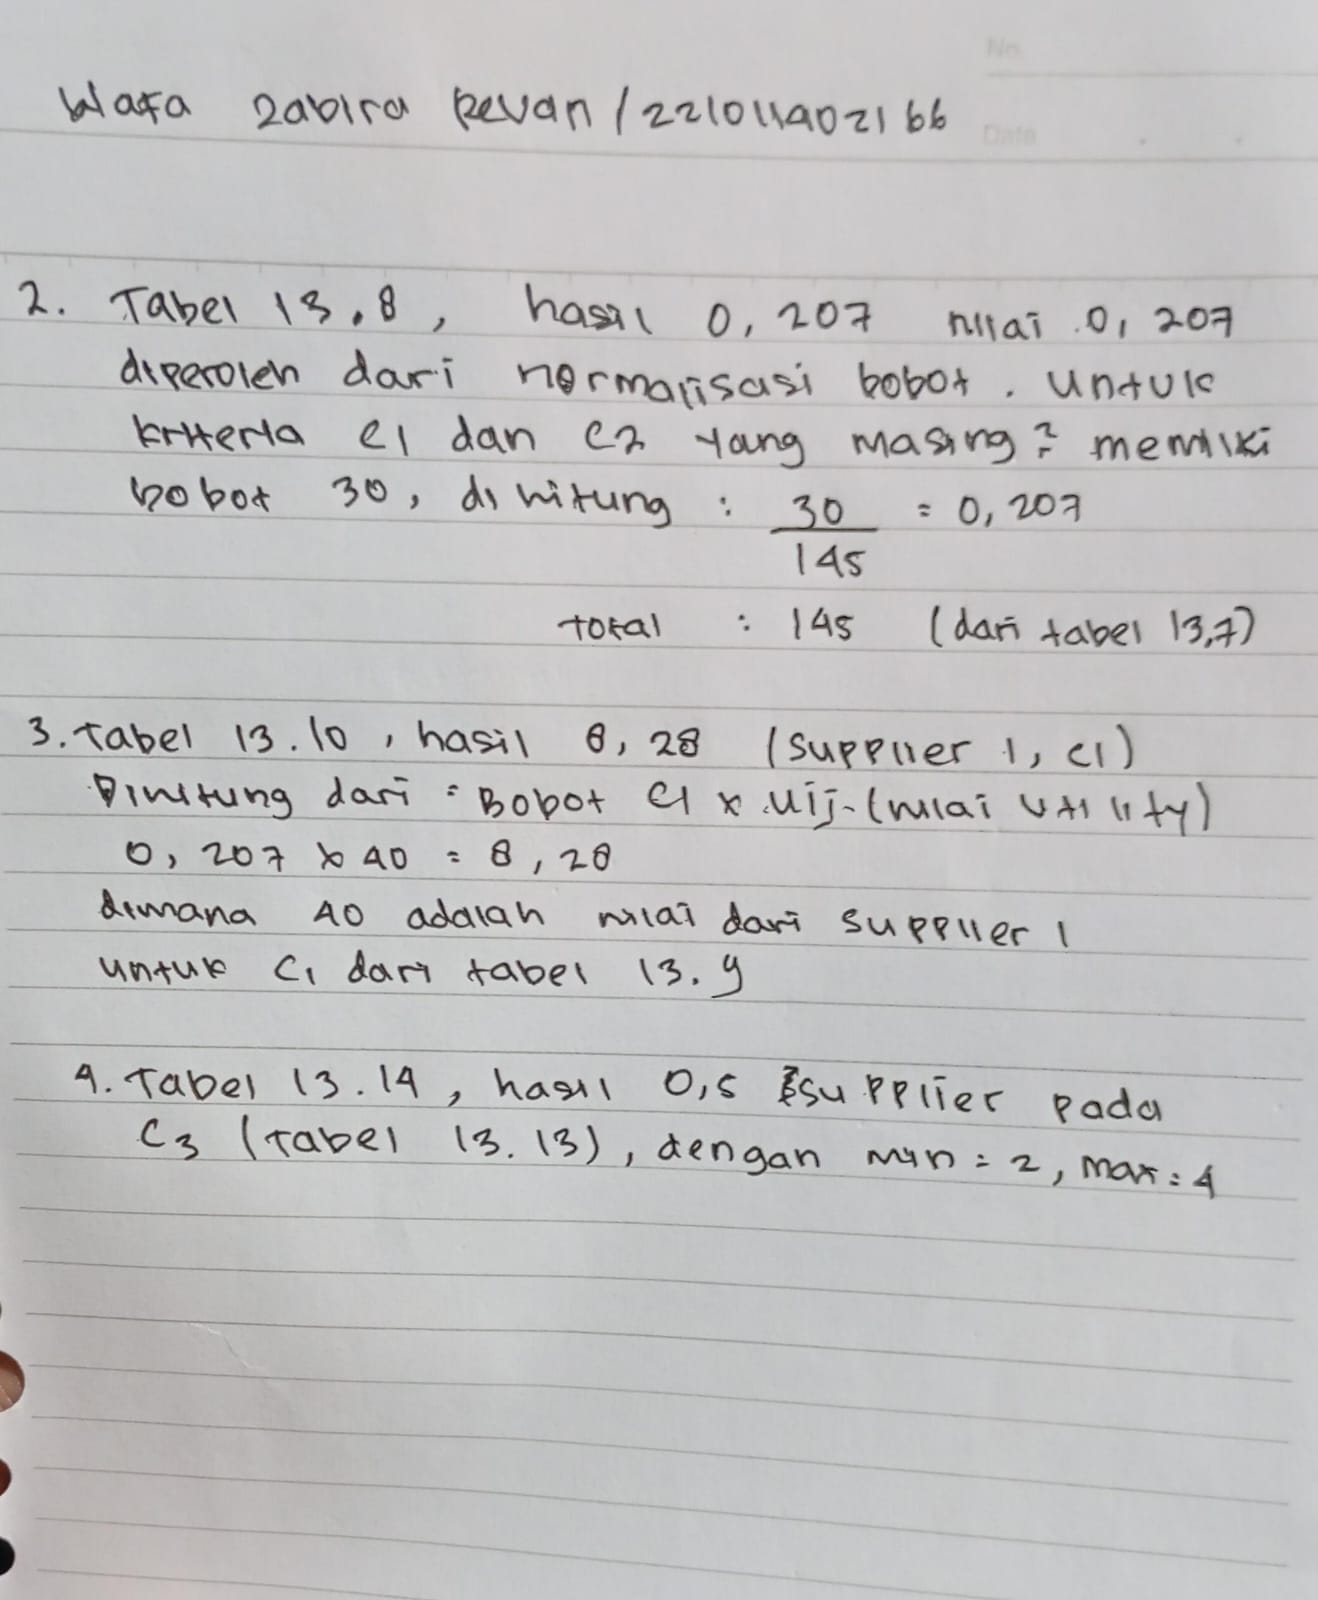 No
Wafa Zabira Revan / 221011402166
Date
2. Tabel 13.8, hasil 0,207 nilai 0,207
diperoleh dari normalisasi bobot. Untuk
kriteria C1 dan C2 yang masing2 memiliki
bobot 30, dihitung : 30/145 = 0,207
total : 145 (dari tabel 13,7)
3. Tabel 13.10, hasil 8,28 (Supplier 1, C1)
Dihitung dari = Bobot C1 x Uij (nilai utility)
0,207 x 40 = 8,28
dimana 40 adalah nilai dari Supplier 1
untuk C1 dari tabel 13.9
4. Tabel 13.14, hasil 0,5 supplier pada
C3 (tabel 13.13), dengan min = 2, max = 4